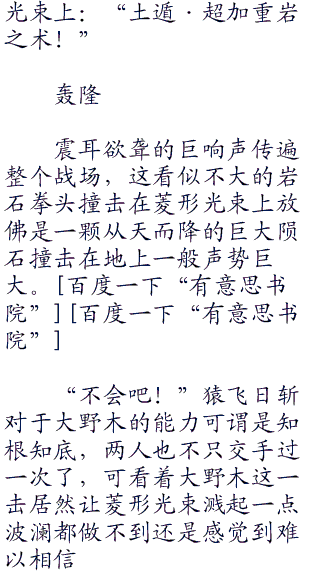 光束上：“土遁·超加重岩
之术！”
轰隆
震耳欲聋的巨响声传遍
整个战场，这看似不大的岩
石拳头撞击在菱形光束上放
佛是一颗从天而降的巨大陨
石撞击在地上一般声势巨
大。[百度一下“有意思书
院”][百度一下“有意思书
院”]
“不会吧！”猿飞日斩
对于大野木的能力可谓是知
根知底，两人也不只交手过
一次了，可看着大野木这一
击居然让菱形光束溅起一点
波澜都做不到还是感觉到难
以相信